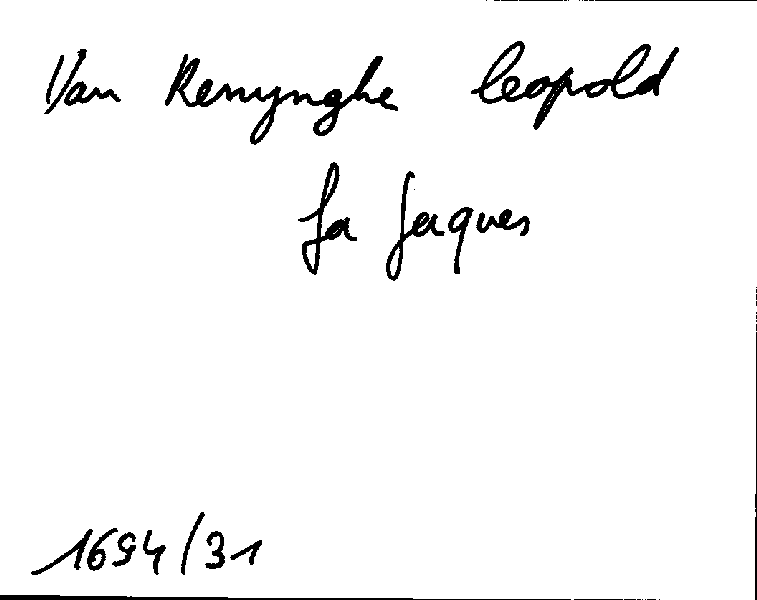 Van Renynghe Leopold
fa Jaques
1694/31